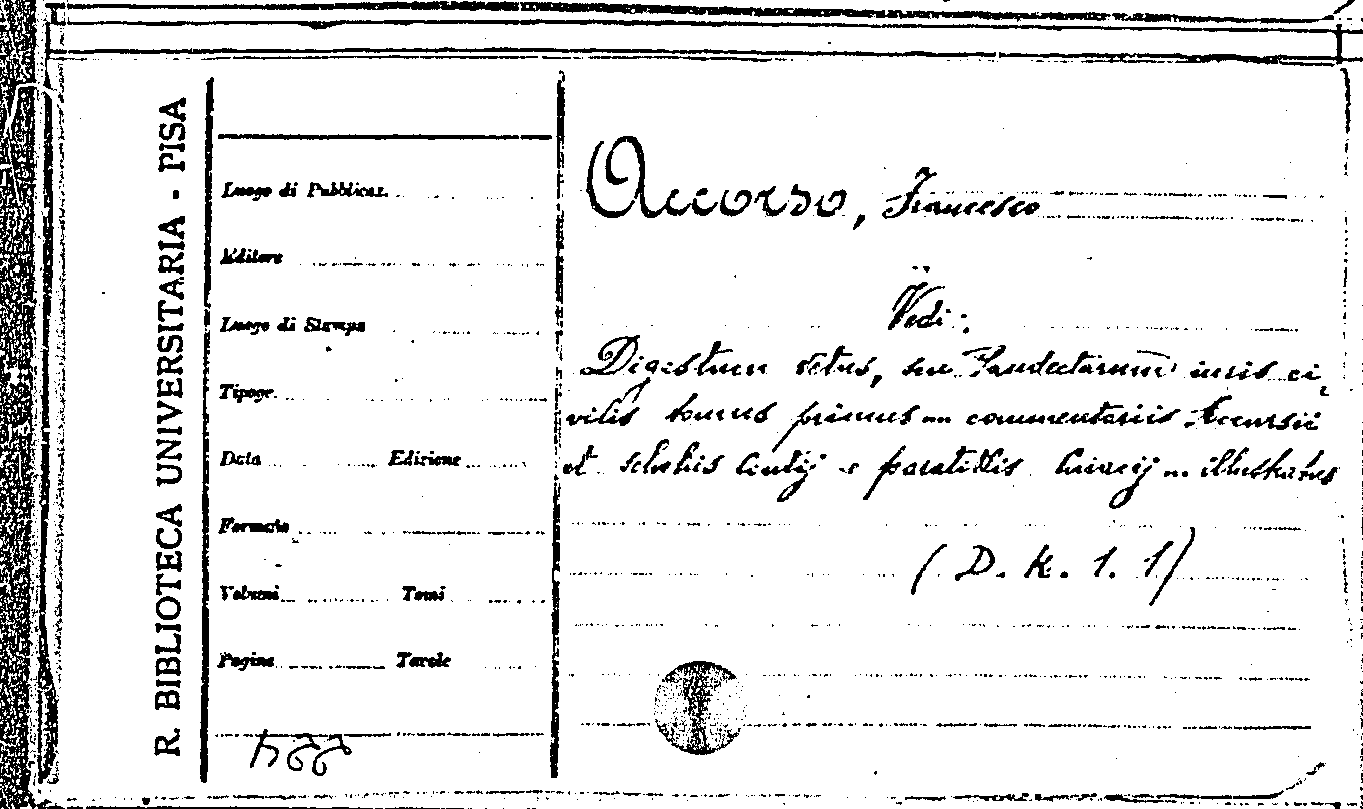 R. BIBLIOTECA UNIVERSITARIA - PISA
Luogo di Pubblicaz.
Editore
Luogo di Stampa
Tipogr.
Data Edizione
Formato
Volumi Tomi
Pagine Tavole
Accorso, Francesco
Vedi:
Digestum vetus, seu Pandectarum iuris ci-
vilis tomus primus ... commentariis Accursii
et scholiis Contij e paratitlis Cuiacij ... illustratus
(D. K. 1. 1)